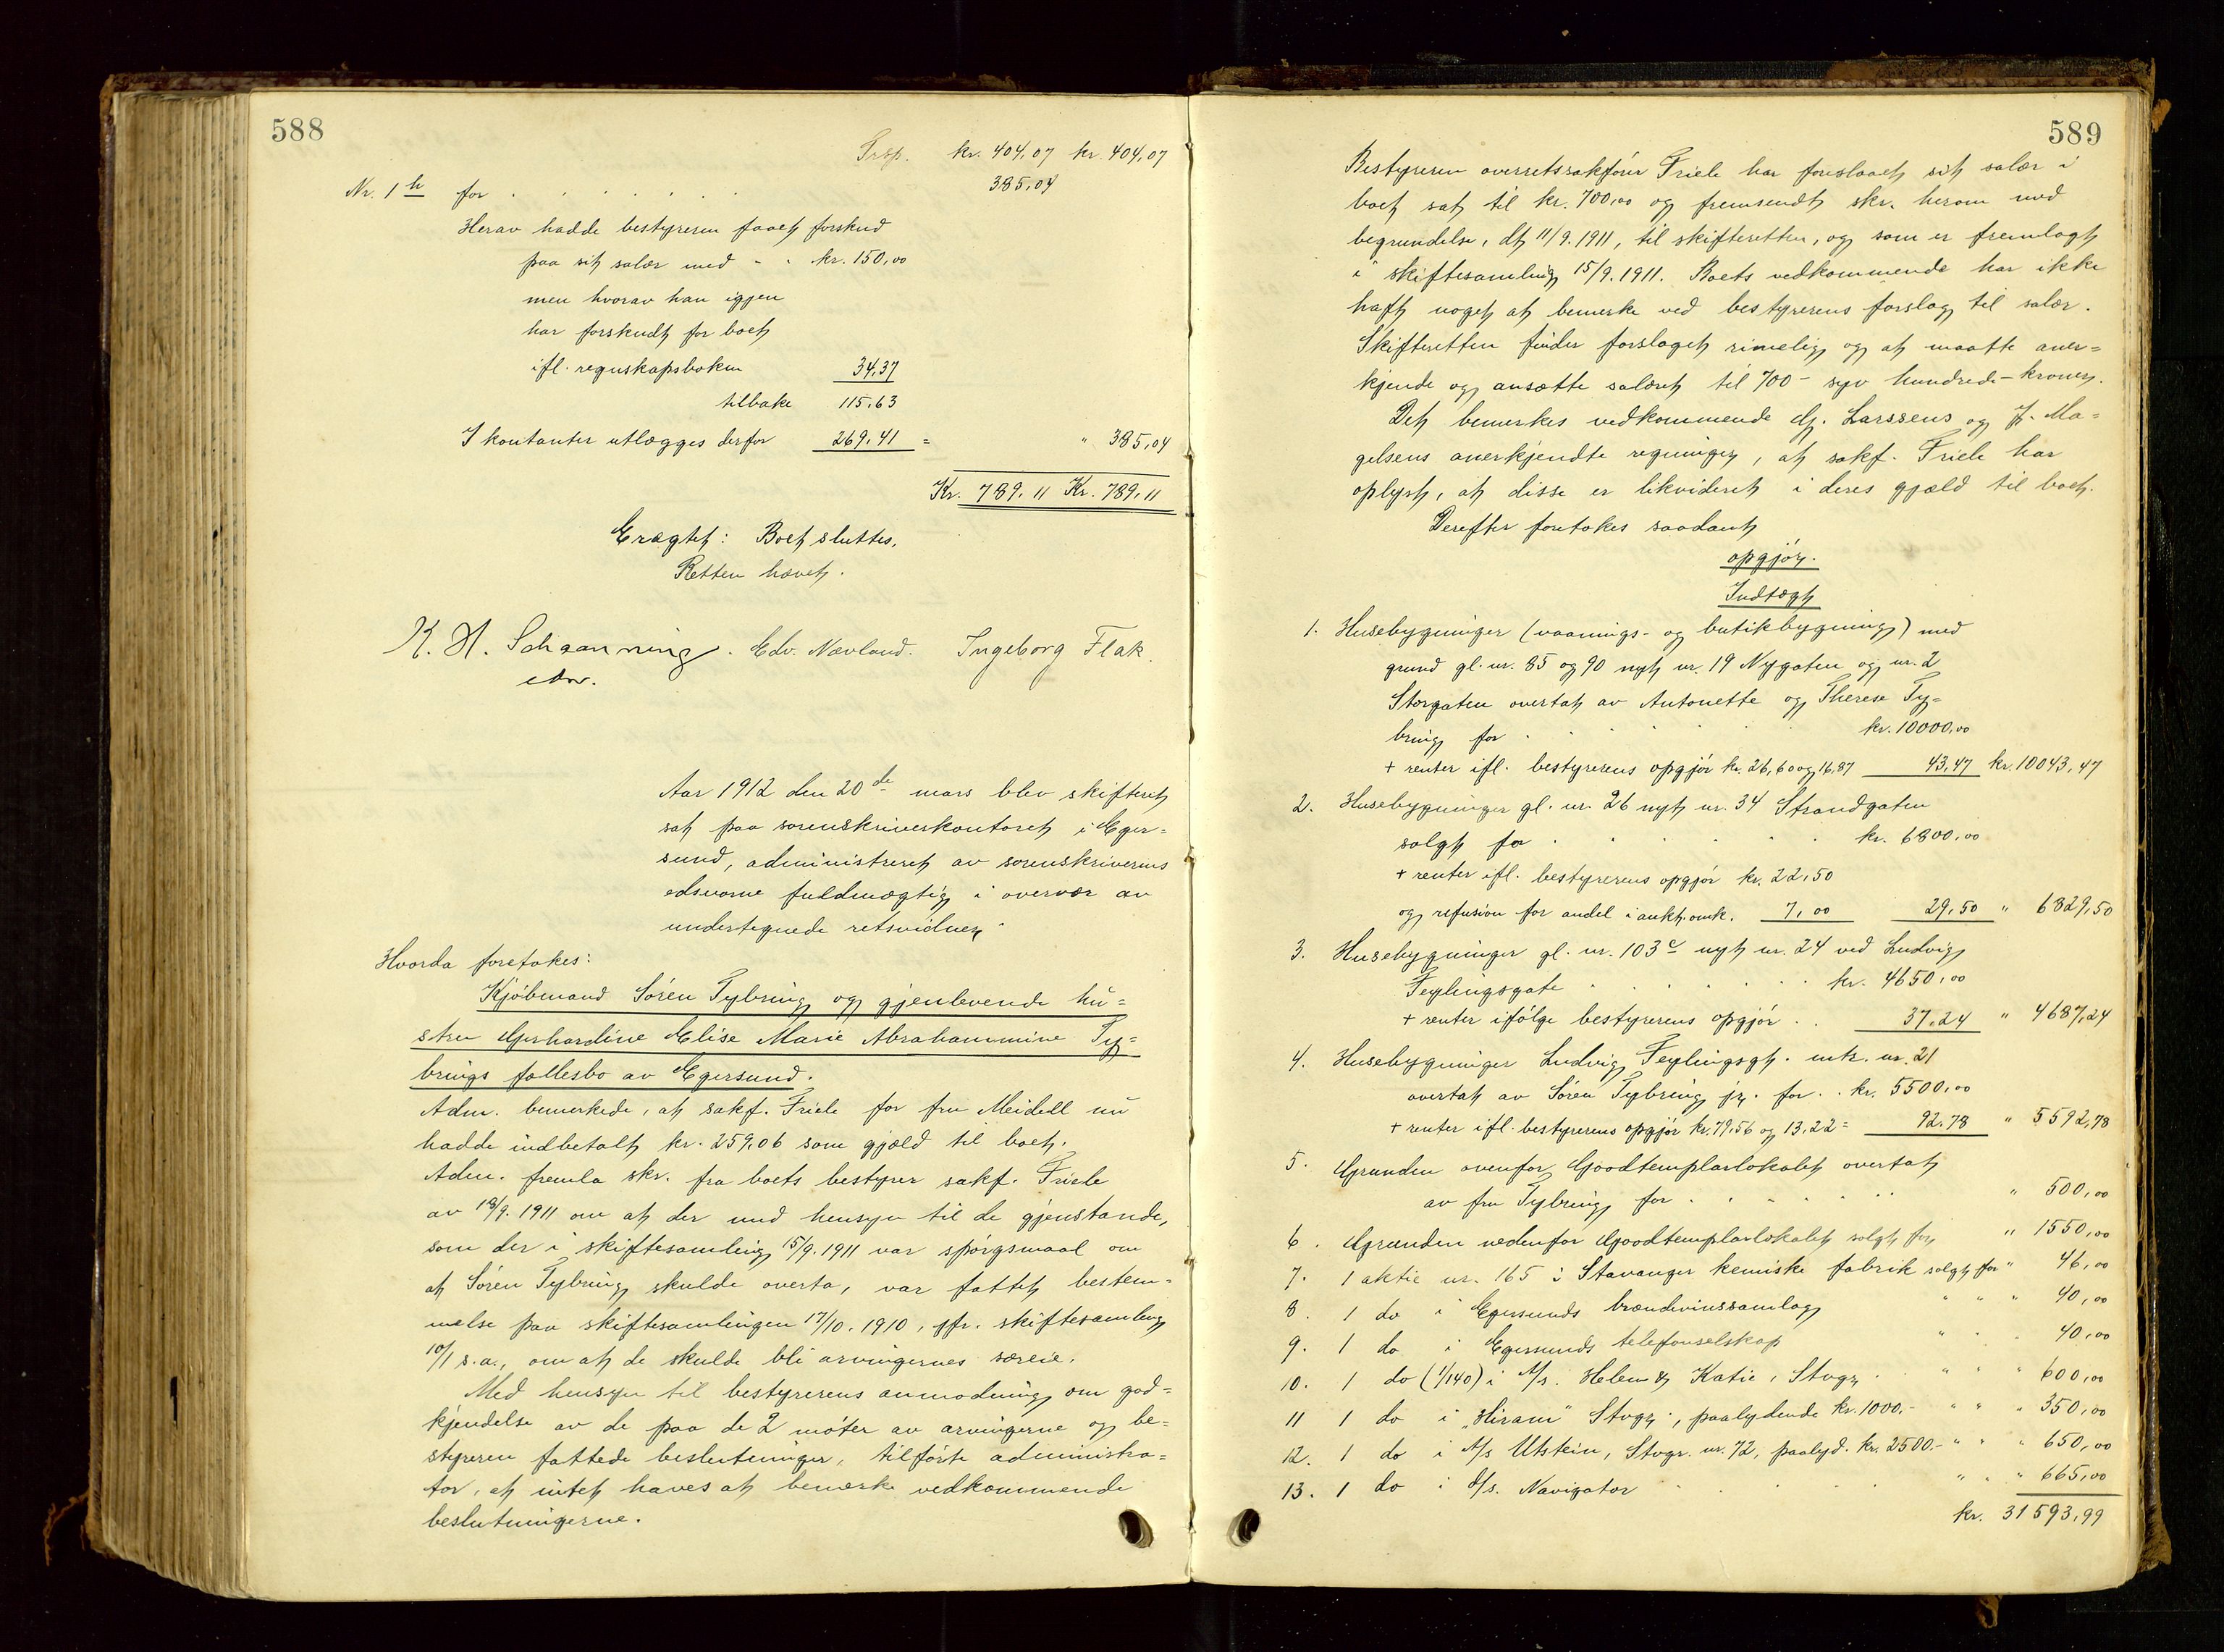 588
Trsp. kr. 404,07 kr. 404,07
Nr. 1h for . . . . . . 385,04
Herav hadde bestyreren faaet forskud
paa sit salær med - - kr. 150,00
men hvorav han igjen
har forskudt for boet
ifl. regnskapsboken 34,37
tilbake 115,63
I kontanter utlægges derfor 269,41 = " 385,04
Kr. 789,11 Kr. 789,11
Eragtet: Boet sluttes.
Retten hævet.
K. H. Schaanning. Edv. Nævland. Ingeborg Flak.
edsv.
Aar 1912 den 20de mars blev skifteret
sat paa sorenskriverkontoret i Eger=
sund, administreret av sorenskriverens
edsvorne fuldmægtig i overvær av
undertegnede retsvidner.
Hvorda foretokes:
Kjøbmand Søren Tybring og gjenlevende hu=
stru Gerhardine Elise Marie Abrahammine Ty=
brings fællesbo av Egersund.
Adm. bemerkede, at sakf. Friele for fru Meidell nu
hadde indbetalt kr. 259,06 som gjæld til boet.
Adm. fremla skr. fra boets bestyrer sakf. Friele
av 18/9. 1911 om at der med hensyn til de gjenstande,
som der i skiftesamling 15/9. 1911 var spørgsmaal om
at Søren Tybring skulde overta, var fattet bestem=
melse paa skiftesamlingen 17/10. 1910, jfr. skiftesamling
10/1 s.a., om at de skulde bli arvingernes særeie.
Med hensyn til bestyrerens anmodning om god=
kjendelse av de paa de 2 møter av arvingerne og be=
styreren fattede beslutninger, tilførte administra=
tor, at intet haves at bemerke vedkommende
beslutningerne.
589
Bestyreren overretssakfører Friele har foreslaaet sit salær i
boet sat til kr. 700,00 og fremsendt skr. herom med
begrundelse, dt. 11/9. 1911, til skifteretten, og som er fremlagt
i skiftesamling 15/9. 1911. Boets vedkommende har ikke
haft noget at bemerke ved bestyrerens forslag til salær.
Skifteretten finder forslaget rimelig og at maatte aner=
kjende og ansætte salæret til 700 - syv hundrede - kroner.
Det bemerkes vedkommende G. Larssens og J. Ma=
gelsens anerkjendte regninger, at sakf. Friele har
oplyst, at disse er likvideret i deres gjæld til boet.
Derefter foretokes saadant
opgjør.
Indtægt
1. Husebygninger (vaanings- og butikbygning) med
grund gl. nr. 85 og 90 nyt nr. 19 Nygaten og nr. 2
Storgaten overtat av Antonette og Therese Ty=
bring for . . . . . . kr. 10000,00
+ renter ifl. bestyrerens opgjør kr. 26,60 og 16,87 43,47 kr. 10043,47
2. Husebygninger gl. nr. 26 nyt nr. 34 Strandgaten
solgt for . . . . . . kr. 6800,00
+ renter ifl. bestyrerens opgjør kr. 22,50
og refusion for andel i aukt.omk. 7,00 29,50 " 6829,50
3. Husebygninger gl. nr. 103c nyt nr. 24 ved Ludvig
Feylingsgate . . . . . . kr. 4650,00
+ renter ifølge bestyrerens opgjør . . 37,24 " 4687,24
4. Husebygninger Ludvig Feylingsgt. mtr. nr. 21
overtat av Søren Tybring jr. for . . kr. 5500,00
+ renter ifl. bestyrerens opgjør kr. 79,56 og 13,22 = 92,78 " 5592,78
5. Grunden ovenfor Goodtemplarlokalet overtat
av fru Tybring for . . . . . . " 500,00
6. Grunden nedenfor Goodtemplarlokalet solgt for " 1550,00
7. 1 aktie nr. 165 i Stavanger kemiske fabrik solgt for " 46,00
8. 1 do i Egersunds brændevinssamlag " " " 40,00
9. 1 do i Egersunds telefonselskap " . . 40,00
10. 1 do (1/140) i A/s. Helen & Katie, Stvgr. " " " 600,00
11 1 do i "Hiram" Stvgr., paalydende kr. 1000.- " " " 350,00
12. 1 do i A/s Utstein, Stvgr. nr. 72, paalyd. kr. 2500.- " " " 650,00
13. 1 do i d/s. Navigator . . . " " " 665,00
kr. 31593,99